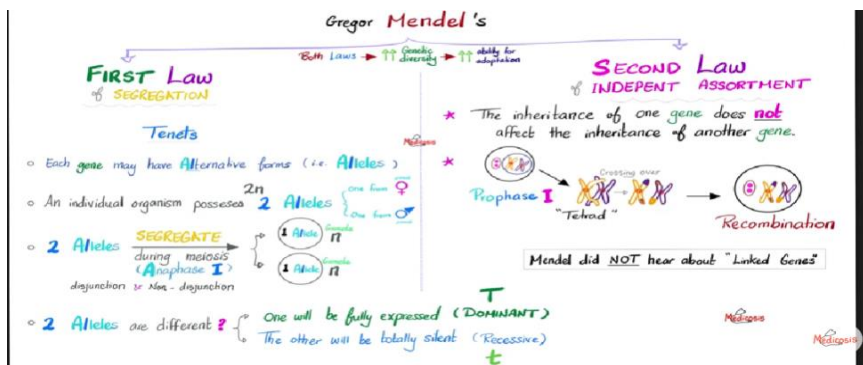 Gregor Mendel's
Both Laws → ↑↑ Genetic diversity → ↑↑ ability for adaptation
FIRST Law
of SEGREGATION
Tenets
Each gene may have Alternative forms (i.e. Alleles)
2n
An individual organism posseses 2 Alleles
One from ♀
One from ♂
2 Alleles SEGREGATE
during meiosis
(Anaphase I)
disjunction Vs Non-disjunction
1 Allele Gamete n
1 Allele Gamete n
2 Alleles are different?
T
One will be fully expressed (DOMINANT)
The other will be totally silent (Recessive)
t
SECOND Law
of INDEPENT ASSORTMENT
* The inheritance of one gene does not
affect the inheritance of another gene.
Medicosis
*
Prophase I
Crossing over
"Tetrad"
Recombination
Mendel did NOT hear about "Linked Genes"
Medicosis
Medicosis